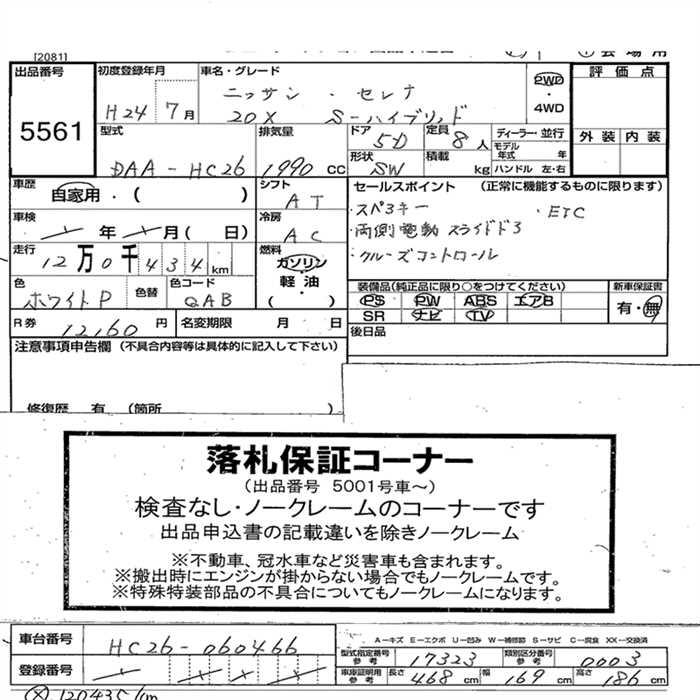 [2081]
出品番号
5561
初度登録年月
H24 7月
車名・グレード
ニッサン・セレナ
20X S-ハイブリッド
2WD
・
4WD
評価点
外装 内装
型式
DAA-HC26
排気量
1990 CC
ドア
5D
定員
8人
形状
SW
積載
kg
ディーラー・並行
モデル年式 年
ハンドル 左・右
車歴
自家用・( )
シフト
AT
車検
年 月( 日)
冷房
AC
走行
12万0千434km
燃料
ガソリン
軽油
( )
色
ホワイトP
色替
色コード
QAB
R券
12,160円
名変期限 月 日
セールスポイント (正常に機能するものに限ります)
・スペアキー ・ETC
・両側電動スライドドア
・クルーズコントロール
装備品(純正品に限り○をつけてください)
PS PW ABS エアB
SR ナビ TV
新車保証書
有・無
後日品
注意事項申告欄 (不具合内容等は具体的に記入して下さい)
修復歴 有 (箇所 )
落札保証コーナー
(出品番号 5001号車~)
検査なし・ノークレームのコーナーです
出品申込書の記載違いを除きノークレーム
※不動車、冠水車など災害車も含まれます。
※搬出時にエンジンが掛からない場合でもノークレームです。
※特殊特装部品の不具合についてもノークレームになります。
車台番号
HC26-060466
登録番号
A-キズ E-エクボ U-凹み W-補修跡 S-サビ C-腐食 XX-交換済
型式指定番号 参考 17323
類別区分番号 参考 0003
車庫証明用 参考 長さ 468cm 幅 169cm 高さ 186cm
120435km